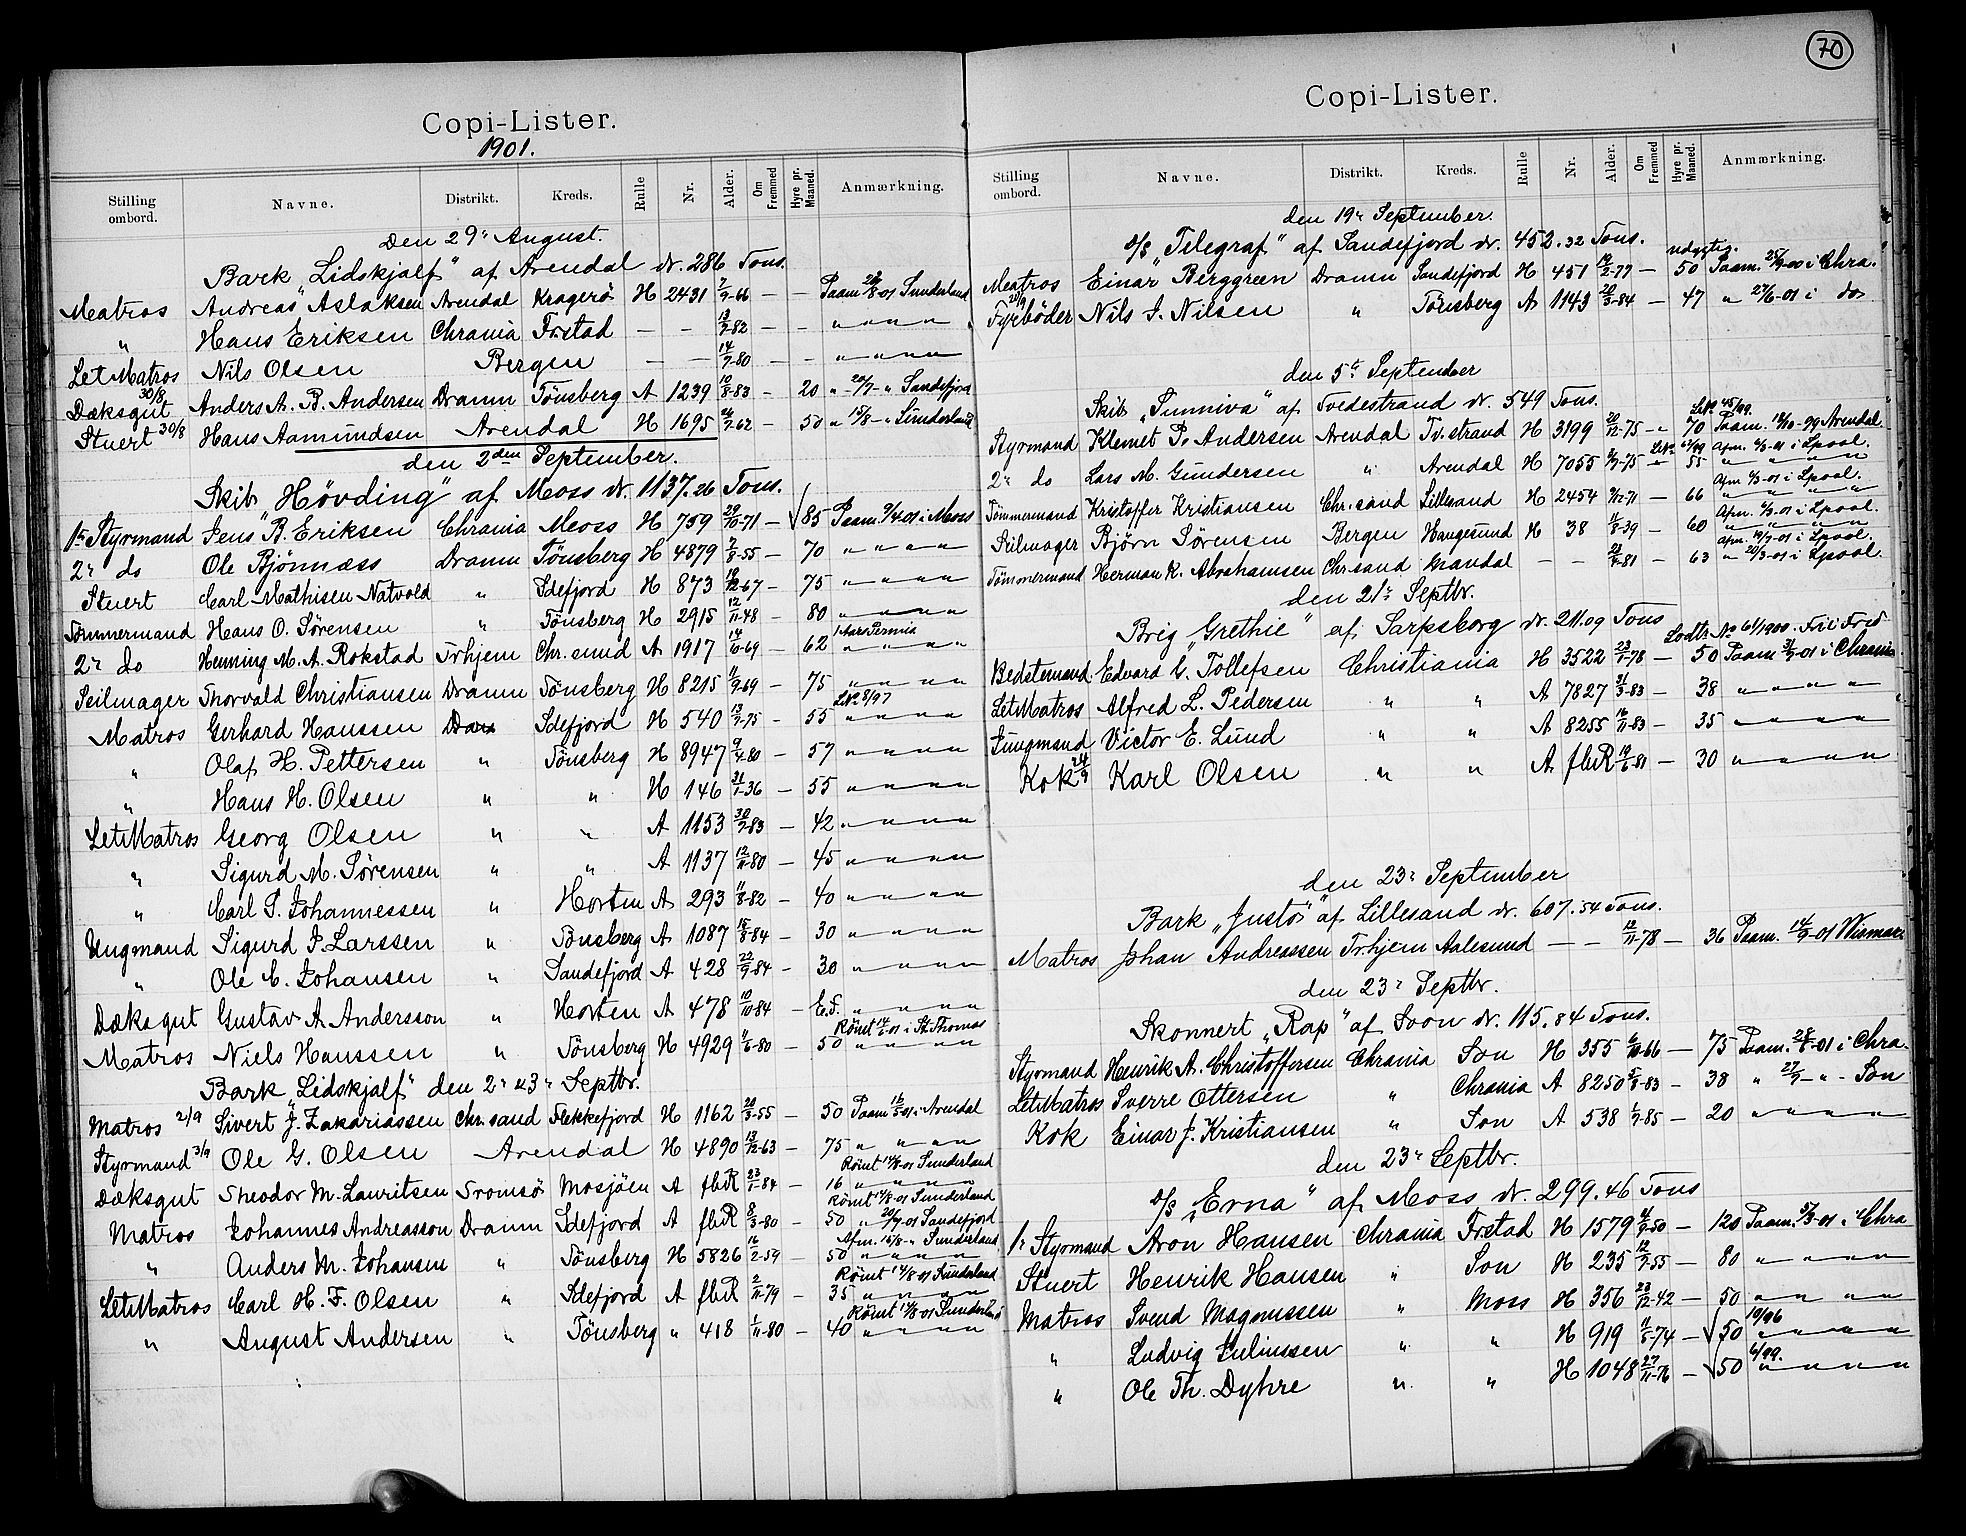 Copi-Lister.
1901.
Stilling ombord. Navne. Distrikt. Kreds. Rulle Nr. Alder. Om Fremmed Hyre pr. Maaned. Anmærkning.
Den 29' August.
Bark "Lidskjalf" af Arendal dr. 286 Tons.
Matros Andreas Aslaksen Arendal Kragerö H 2431 7/9-66 — — Paam 28/8-01 Sunderland
" Hans Eriksen Chrania Frstad — — 13/7-82 — — " " " "
Let Matros Nils Olsen Bergen — — 14/7-80 — — " " " "
Dæksgut 30/8 Anders A. B. Andersen Dramn Tönsberg A 1239 10/8-83 — 20 " 20/7 - " Sandefjord
Stuert 30/8 Hans Aamundsen Arendal H 1695 -62 — 50 " 15/8 - " Sunderland
den 2den September.
Skib "Hövding" af Moss dr. 1137.26 Tons.
1ste Styrmand Jens B. Eriksen Chrania Moss H 759 29/10-71 — 85 Paam. 9/4-01 i Moss
2' do Ole Bjönnæss Dramn Tönsberg H 4879 7/8-55 — 70 " " " "
Stuert Carl Mathisen Natvold " Sdefjord H 873 18/12-67 — 75 " " " "
Tömmermand Hans O. Sørensen " Tönsberg H 2915 12/11-48 — 80 " " " "
2' do Henning M. A. Rokstad Trhjem Chr. sund A 1917 14/10-69 — 62 1 Aars Termin " " " "
Seilmager Thorvald Christiansen Dramn Tönsberg H 8215 11/9-69 — 75 " " " "
Matros Gerhard Hanssen Dram Sdefjord H 540 13/7-75 — 55 L.No 8/97 " " " "
" Olaf H. Pettersen " Tönsberg H 8947 9/4-80 — 57 " " " "
" Hans H. Olsen " " H 146 31/1-36 — 55 " " " "
Let Matros Georg Olsen " " A 1153 30/7-83 — 42 " " " "
" Sigurd M. Sørensen " " A 1137 12/11-80 — 45 " " " "
" Carl S. Johannessen " Horten A 293 11/8-82 — 40 " " " "
Ungmand Sigurd J Larssen " Tönsberg A 1087 15/8-84 — 30 " " " "
" Ole C. Johansen " Sandefjord A 428 22/9-84 — 30 " " " "
Dæksgut Gustav A. Andersson " Horten A 478 10/10-84 — E.F. " " " "
Matros Niels Hanssen " Tönsberg H 4929 11/6-80 — 50 Römt 14/6-01 i St. Thomas " " " "
Bark "Lidskjalf" den 2' & 3' Septbr.
Matros 2/9 Sivert J. Zakariassen Chr. sand Flekkefjord H 1162 20/3-55 — 50 Paam 16/5-01 i Arendal
Styrmand 3/9 Ole G. Olsen Arendal H 4890 13/12-63 — 75 " " " "
Dæksgut Theodor M. Lauritsen Tromsö Mosjöen A fbR 23/1-84 — 16 Römt 14/8-01 Sunderland " " " "
Matros Johannes Andreasson Dramn Sdefjord A fbR 8/3-80 — 50 Römt 14/8-01 Sunderland " 20/7-01 Sandefjord
" Anders M. Johansen " Tönsberg H 5826 16/2-59 — 50 Afm. 16/8 - " Sunderland " " " "
Let Matros Carl H. F. Olsen " Sdefjord A fbR 2/11-79 — 35 Römt 14/8-01 Sunderland " " " "
" August Andersen " Tönsberg " 418 1/11-80 — 40 Römt 14/8-01 Sunderland " " " "
70
Copi-Lister.
Stilling ombord. Navne. Distrikt. Kreds. Rulle Nr. Alder. Om Fremmed Hyre pr. Maaned. Anmærkning.
den 19' September.
D/S "Telegraf" af Sandefjord dr. 452.32 Tons.
Matros Einar Berggreen Dramn Sandefjord H 451 19/2-77 — 50 udygtig. Paam. 25/9-00 i Chra.
Fyrböder 20/9 Nils J. Nilsen " Tönsberg A 1143 20/3-84 — 47 " 27/6-01 i do
den 5te September
Skib "Sunniva" af Tvedestrand dr. 549 Tons.
Styrmand Klemet P. Andersen Arendal Tv. strand H 3199 20/12-75 — " 70 L.No 45/99. Paam. 18/10-99 Arendal
2' do Lars M. Gundersen " Arendal H 7055 -75 — 55 Afm. -01 i Lpool. " " "
Tömmermand Kristoffer Kristiansen Chr. sand Lillesand H 2454 -71 — 66 Afm -01 i Lpool. " " " "
Seilmager Bjørn Sörensen Bergen Haugesund H 38 11/8-39 — 60 Afm. -01 i Lpool. " " " "
Tömmermand Herman K. Abrahamsen Chr. sand Mandal — — -81 — 63 Afm. 19/7-01 i Lpool. " 20/3-01 i Lpool.
den 21' Septbr.
Brig "Grethie" af Sarpsborg dr. 211.09 Tons
Bedstemand Edvard G. Tollefsen Christiania H 3522 23/1-78 — 50 Lodtr. No 61/1900. Fri i Fred Paam 3/9-01 i Chrania
Let Matros Alfred L. Pedersen " " A 7827 31/3-83 — 38 " " " "
Jungmand Victor E. Lund " " A 8255 16/11-83 — 35 " " " "
Kok 24/9 Karl Olsen " " A fbR 19/6-81 — 30 " " " "
den 23' September
Bark "Justö" af Lillesand dr. 607.54 Tons.
Matros Johan Andreassen Trhjem Aalesund — — 12/11-78 — 36 Paam. 14/9-01 Wismar
den 23' Septbr.
Skonnert "Rap" af Soon dr. 115.84 Tons.
Styrmand Henrik A. Christoffersen Chrania Son H 355 6/10-66 — 75 Paam. 28/6-01 i Chra.
Let Matros Sverre Ottersen " Chrania A 8250 5/8-83 — 38 " 27/7 - " - Son
Kok Einar J. Kristiansen " Son A 538 -85 — 20 " " " "
den 23' Septbr.
D/S "Erna" af Moss dr. 299.46 Tons
1' Styrmand Aron Hansen Chrania Frstad H 1579 -50 — 120 Paam. -01 i Chra
Stuert Henrik Hansen " Son H 235 12/7-55 — 80 " " " "
Matros Svend Magnussen " Moss H 356 23/12-42 — 50 " " " "
" Ludvig Juliussen " " H 919 11/5-74 — 50 10/96 " " " "
" Ole Th. Dyhre " " H 1048 27/11-76 — 50 6/99. " " " "